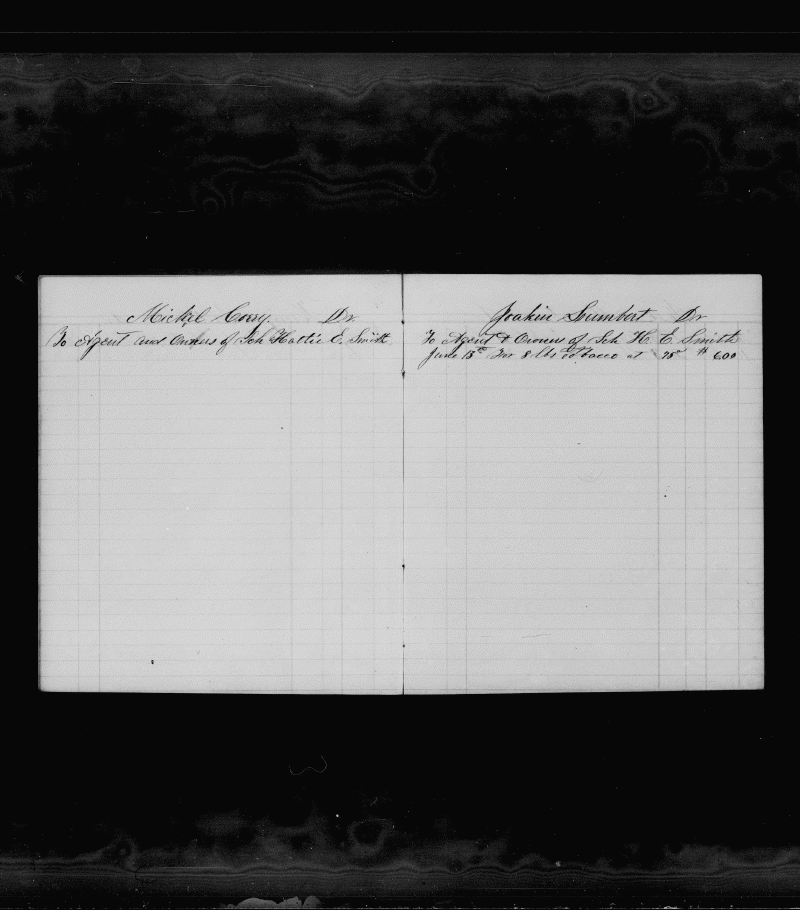 Mickel Corey. Dr
To Agent and Owners of Sch Hattie E. Smith
Joakin Lumbert Dr
To Agent & Owners of Sch H. E. Smith
June 15th For 8 lbs tobacco at 75c $ 6.00